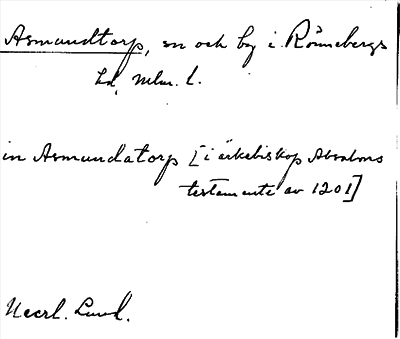 Asmundtorp, sn och by i Rönnebergs
hd, Mlm. l.
in Asmundatorp [i ärkebiskop Absalons
testamente av 1201]
Necrl. Lund.